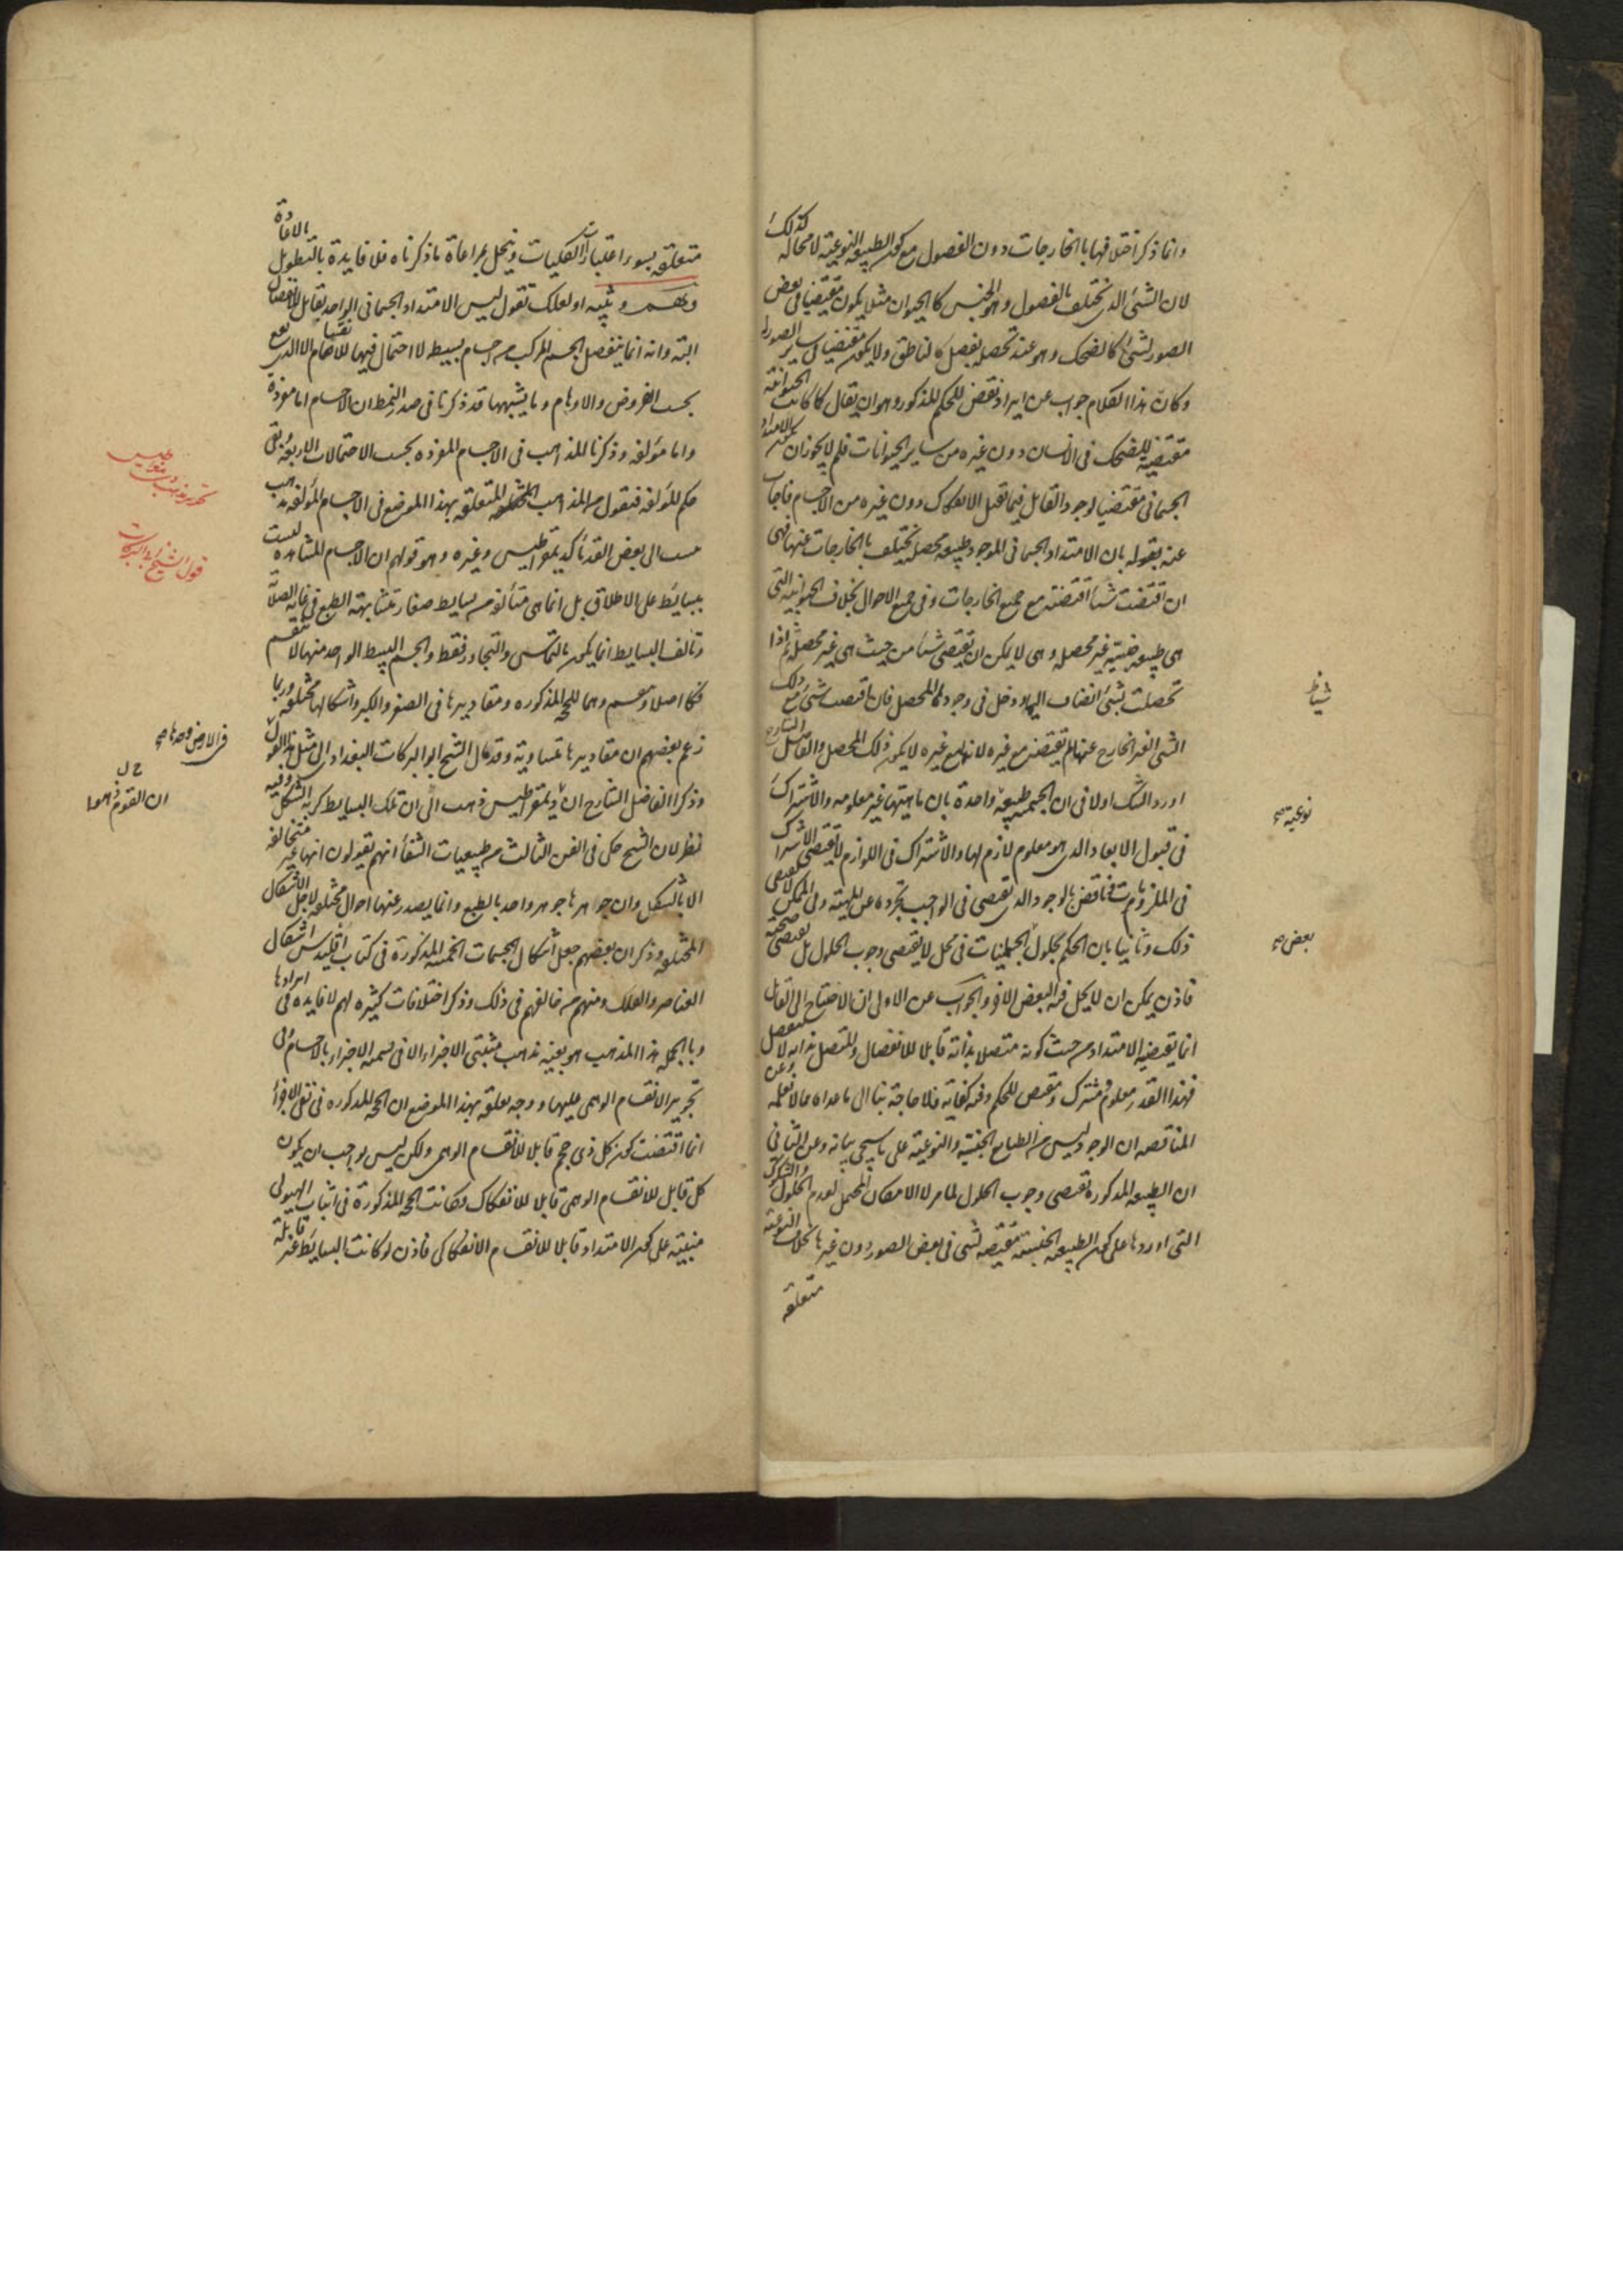 وانما ذكر اختلافها بالخارجات دون الفصول مع كون الطبيعة النوعية لا محالة كذلك
لان الشئ الذى يختلف بالفصول وهو الجنس كالحيوان مثلا يكون مقتضيا فى بعض
الصور لشئ كالضحك وهو عند تحصله بفصل كالناطق ولا يكون مقتضيا فى ساير الصور له
وكان هذا الكلام جواب عن ايراد نقض للحكم المذكور وهو ان يقال كما كانت الحيوانية
مقتضية للضحك فى الانسان دون غيره من ساير الحيوانات فلم لا يجوز ان يكون الامتداد
الجسمانى مقتضيا لوجود القابل فيما تقبل الانفكاك دون غيره من الاجسام فاجاب
عنه بقوله بان الامتداد الجسمانى الموجود طبيعة محصلة تختلف بالخارجات عنها فهى
ان اقتضت شيئا اقتضته مع جميع الخارجات وفى جميع الاحوال بخلاف الحيوانية التى
هى طبيعة جنسية غير محصلة وهى لا يمكن ان يقتضى شيئا من حيث هى غير محصلة ثم اذا
تحصلت بشئ انضاف اليها ودخل فى وجودها المحصل فان اقتضت شيئا مع ذلك
الشئ الغير الخارج عنها لم تقتضه مع غيره لانها مع غيره لا يكون ذلك المحصل والفاضل الشارح
اورد الشك اولا فى ان الجسمية طبيعة واحدة بان ماهيتها غير معلومة والاشتراك
فى قبول الابعاد الذى هو معلوم لازم لها والاشتراك فى اللوازم لا يقتضى الاشتراك
فى الملزومات فناقض بالوجود الذى يقتضى فى الواجب تجرده عن الماهية وفى الممكن لا يقتضى
ذلك وثانيا بان الحكم بحلول الجسميات فى محل لا يقتضى وجوب الحلول بل يقتضى صحته
فاذن يمكن ان لا يحل فيه البعض الاخر والجواب عن الاول ان الاحتياج الى القابل
انما يقتضيه الامتداد من حيث كونه متصلا بذاته قابلا للانفصال والمتصل بذاته لا ينفصل
فهذا القدر معلوم مشترك ومقتض للحكم وفيه كفاية فلا حاجة بنا الى ما عداه مما لا نعلمه وعن
المناقضة ان الوجود ليس من الطبايع الجنسية والنوعية على ما سيجئ بيانه وعن الثانى
ان الطبيعة المذكورة تقتضى وجوب الحلول لما مر لا الامكان المحتمل لعدم الحلول والشكوك
التى اوردها على كون الطبيعة الجنسية مقتضية لشئ فى بعض الصور دون غيرها بخلاف النوعية
متعلقة
شيئا
نوعية صح
بعض صح
متعلقة بسوء اعتبارات الكليات وينحل بمراعاة ما ذكرناه فلا فايدة بالتطويل بالاعادة
وهم وتنبيه او لعلك تقول ليس الامتداد الجسمانى الواحد بقابل للانفصال
البتة وانه انما ينفصل الجسم المركب من اجسام بسيطة لا احتمال فيها للانقسام الا الذى يقع
بحسب الفروض والاوهام وما يشبهها قد ذكرنا فى صدر النمط ان الاجسام اما مفردة
واما مؤلفة وذكرنا المذاهب فى الاجسام المفردة بحسب الاحتمالات الاربعة وبقى
حكم المؤلفة فنقول من المذاهب المختلفة المتعلقة بهذا الموضع فى الاجسام المؤلفة مذهب
ينسب الى بعض القدماء كديمقراطيس وغيره وهو قولهم ان الاجسام المشاهدة ليست
ببسايط على الاطلاق بل انما هى متألفة من بسايط صغار متشابهة الطبع فى غاية الصلابة
وتألف البسايط انما يكون بالتماس والتجاور فقط والجسم البسيط الواحد منها لا ينقسم
فكا اصلا وينقسم وهما للحجة المذكورة ومقاديرها فى الصغر والكبر واشكالها مختلفة وربما
زعم بعضهم ان مقاديرها متساوية وقد مال الشيخ ابو البركات البغدادى الى مثل هذا القول
وذكر الفاضل الشارح ان ديمقراطيس ذهب الى ان تلك البسايط كرية الشكل وفيه
نظر لان الشيخ حكى فى الفن الثالث من طبيعيات الشفاء انهم يقولون انها غير متخالفة
الا بالشكل وان جوهرها جوهر واحد بالطبع وانما يصدر عنها احوال مختلفة لاجل الاشكال
المختلفة وذكر ان بعضهم جعل اشكال المجسمات الخمسة المذكورة فى كتاب اقليدس اشكال
العناصر والفلك ومنهم من خالفهم فى ذلك وذكر اختلافات كثيرة لهم لا فايدة فى ايرادها
وبالجملة هذا المذهب هو بعينه مذهب مثبتى الاجزاء الا فى تسمية الاجزاء بالاجسام وفى
تجويز الانقسام الوهمى عليها ووجه تعلقه بهذا الموضع ان الحجة المذكورة فى نفى الاجزاء
انما اقتضت كون كل ذى حجم قابلا للانقسام الوهمى ولكن ليس بواجب ان يكون
كل قابل للانقسام الوهمى قابلا للانفكاك وكانت الحجة المذكورة فى اثبات الهيولى
مبنية على كون الامتداد قابلا للانقسام الانفكاكى فاذن لو كانت البسايط غير قابلة
قول الشيخ ابو البركات
فى الارض وحدها صح
ان القوم ذهبوا